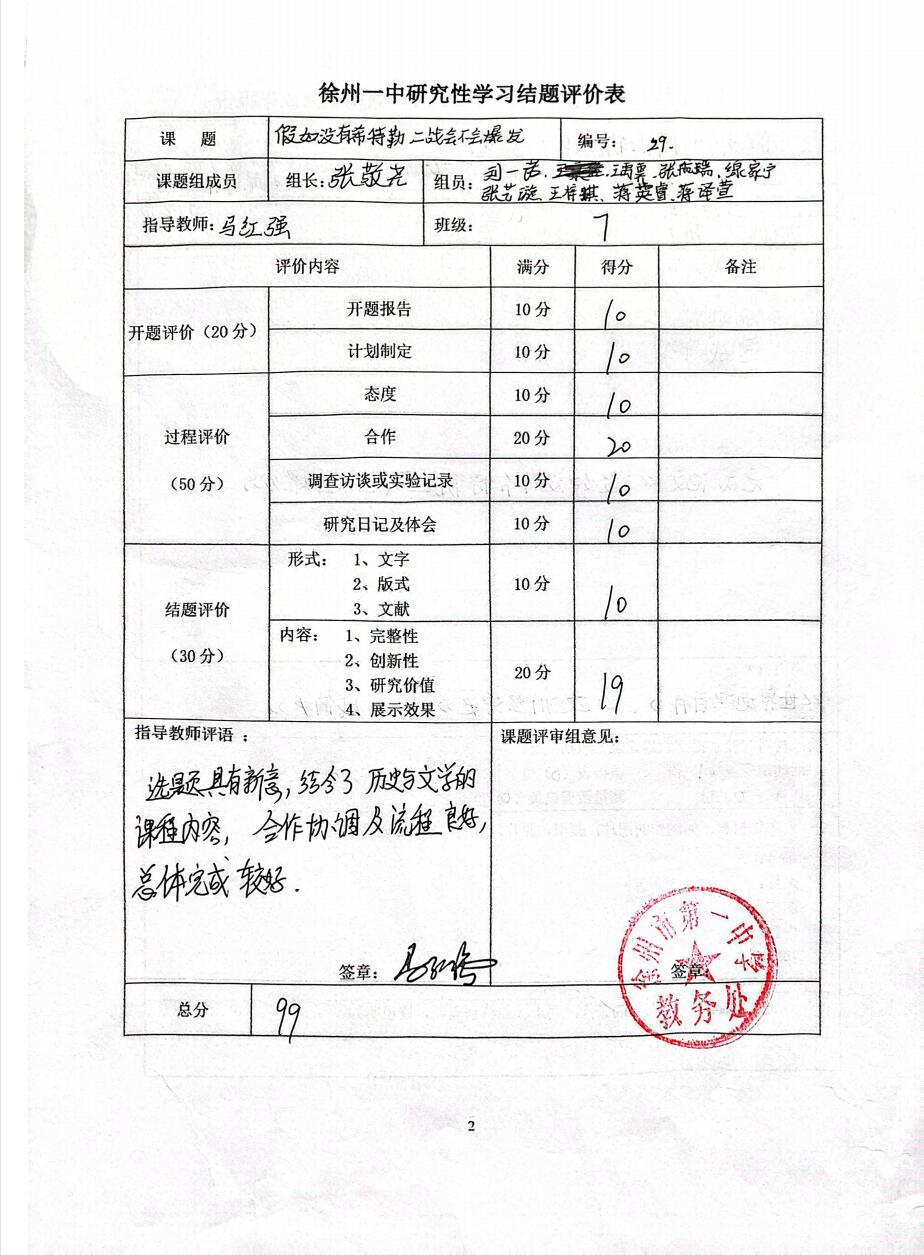 徐州一中研究性学习结题评价表
课 题 假如没有希特勒二战会不会爆发 编号: 29.
课题组成员 组长:张敬尧 组员: 刘一诺、王禹霁、张雨瑞、缐家宁
张艺璇、王梓骐、蒋英睿、蒋译萱
指导教师:马红强 班级: 7
评价内容 满分 得分 备注
开题评价(20分) 开题报告 10分 10
计划制定 10分 10
过程评价
(50分)
态度 10分 10
合作 20分 20
调查访谈或实验记录 10分 10
研究日记及体会 10分 10
结题评价
(30分)
形式: 1、文字
2、版式
3、文献
10分 10
内容: 1、完整性
2、创新性
3、研究价值
4、展示效果
20分 19
指导教师评语 :
选题具有新意,结合了历史与文学的
课程内容, 合作协调及流程良好,
总体完成较好.
签章: 马红强
课题评审组意见:
签章:
徐州市第一中学
教务处
总分 99
2